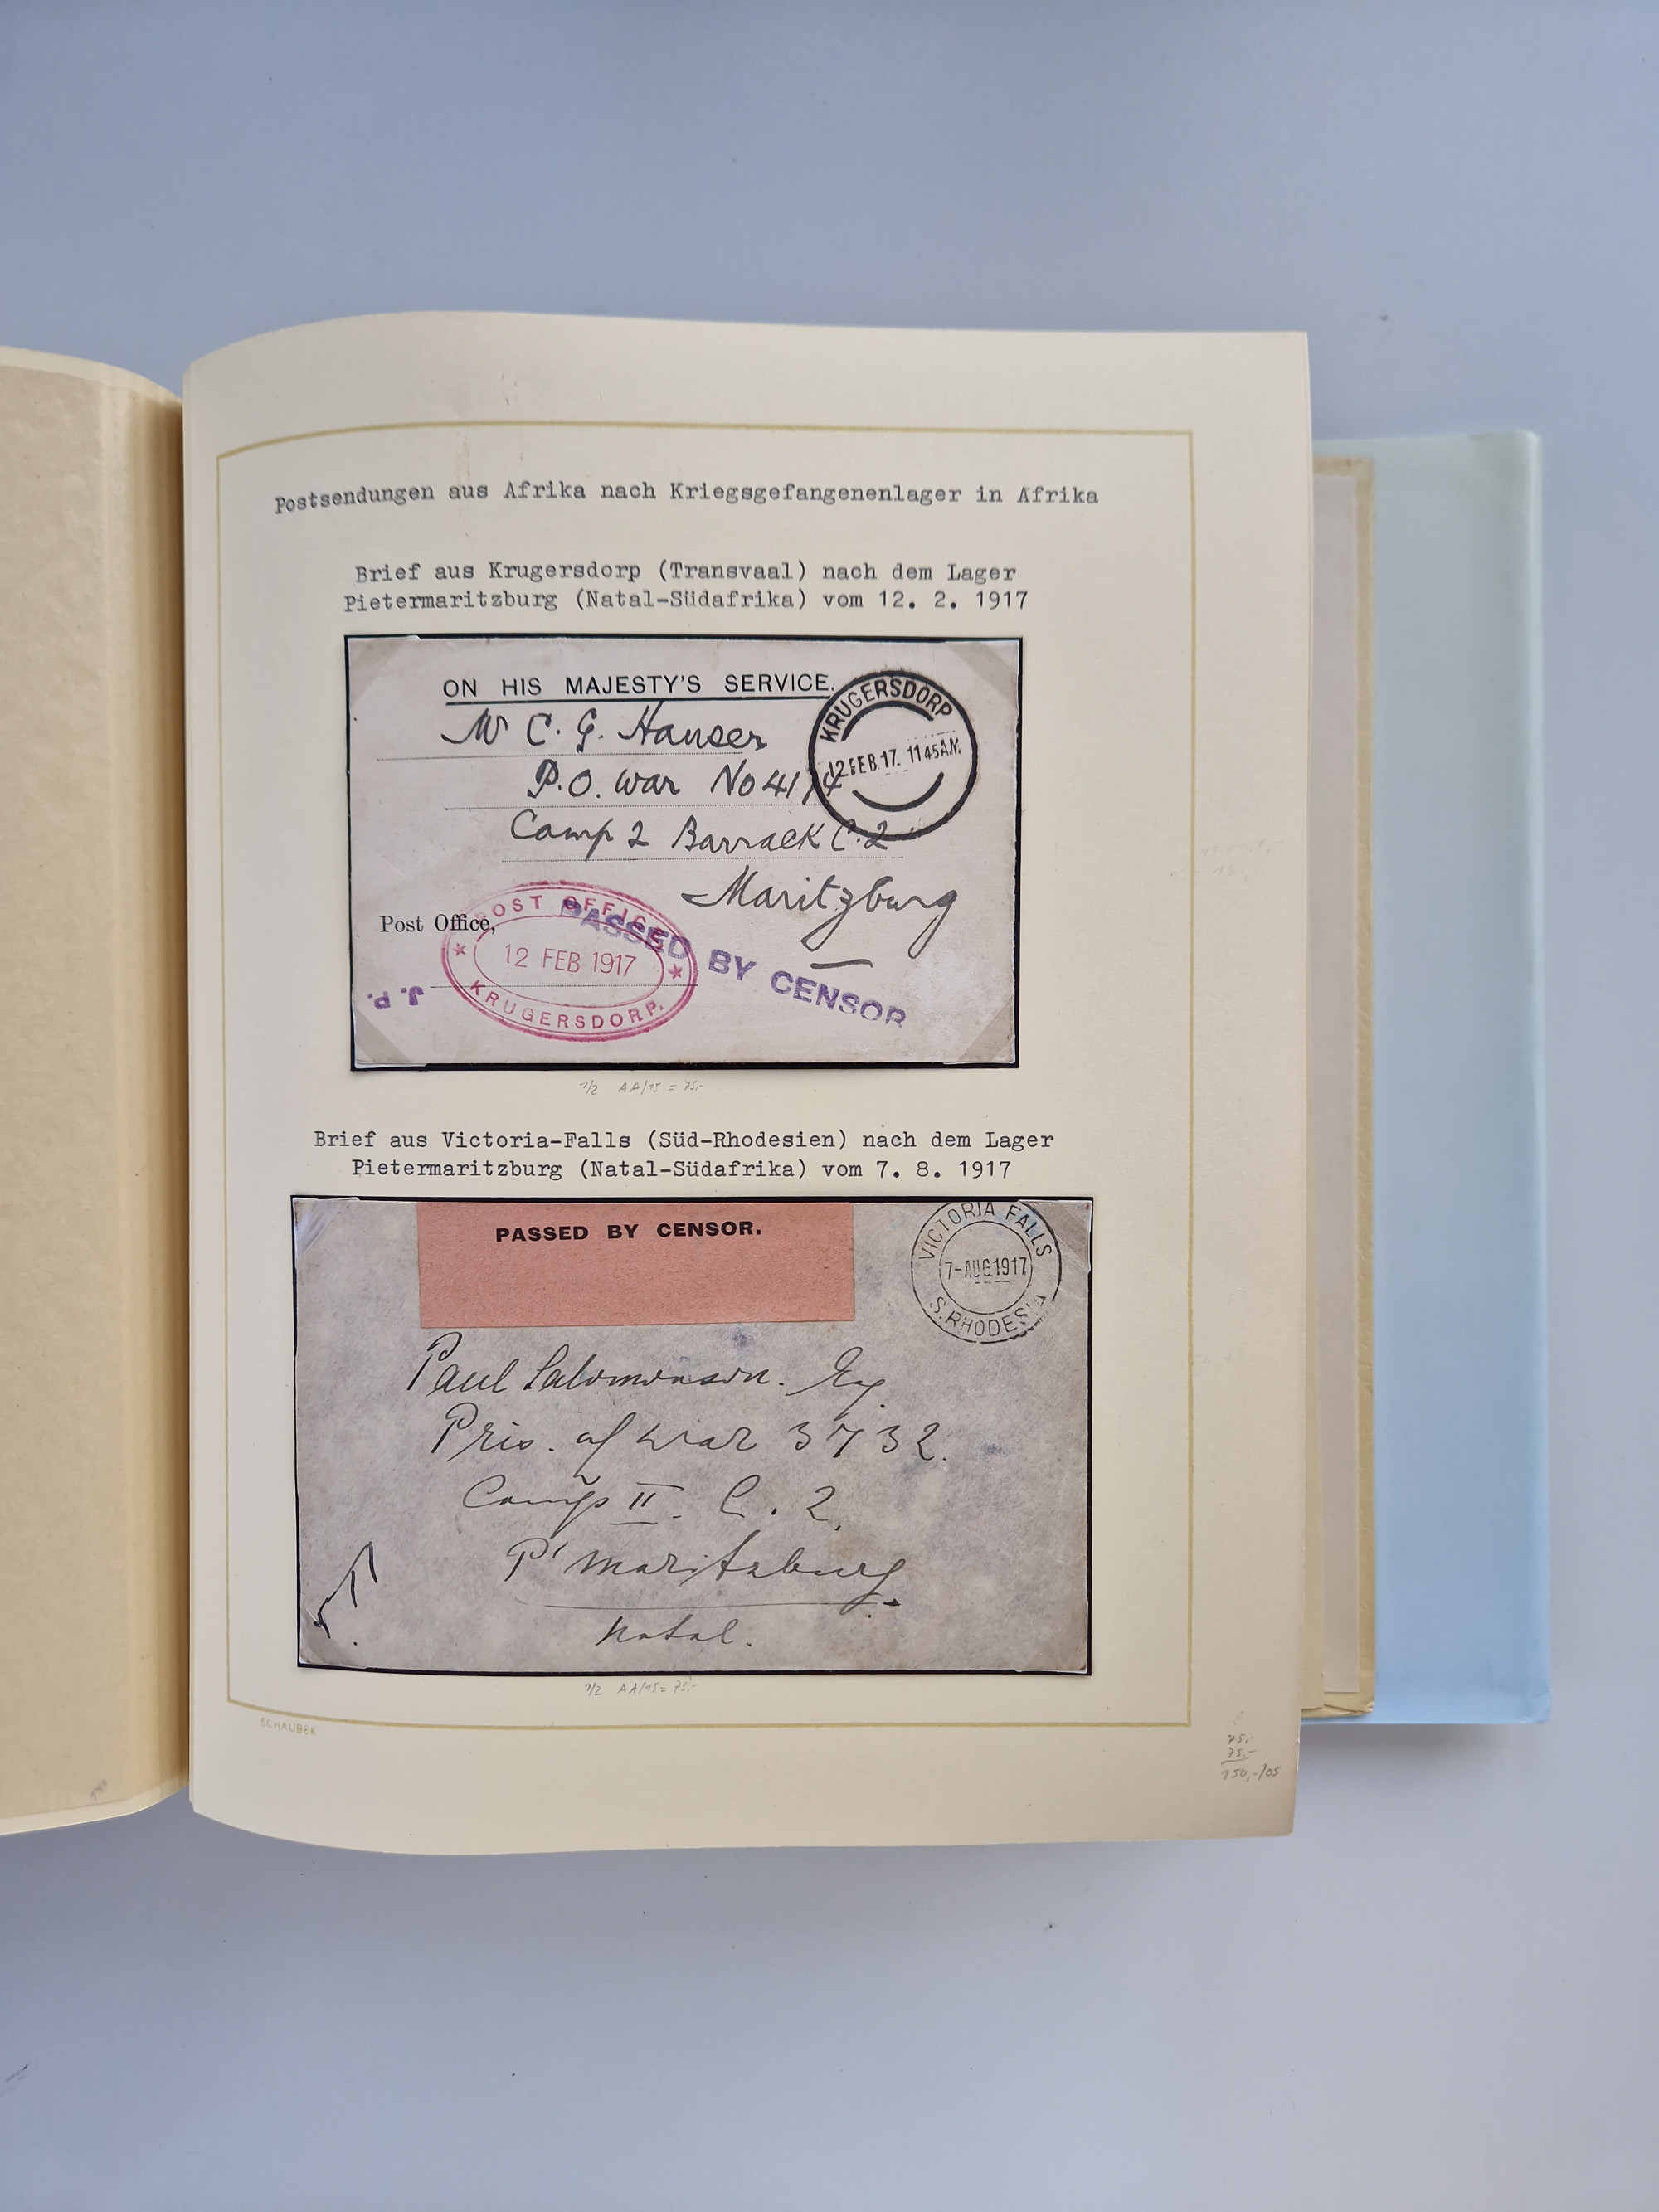 Postsendungen aus Afrika nach Kriegsgefangenenlager in Afrika
Brief aus Krugersdorp (Transvaal) nach dem Lager
Pietermaritzburg (Natal-Südafrika) vom 12. 2. 1917
ON HIS MAJESTY'S SERVICE.
KRUGERSDORP
12 FEB.17. 11 45 A.M.
Mr C. G. Hauser
P.O. war No
Camp 2 Barrack C.2
Maritzburg
Post Office,
POST OFFICE
12 FEB 1917
KRUGERSDORP.
PASSED BY CENSOR
J. P.
1/2 AA/15 = 75,-
Brief aus Victoria-Falls (Süd-Rhodesien) nach dem Lager
Pietermaritzburg (Natal-Südafrika) vom 7. 8. 1917
PASSED BY CENSOR.
VICTORIA FALLS
7-AUG 1917
S. RHODESIA
Paul Salomonson. Esq
Pris. of war 3732.
Camp II. C. 2.
P'maritzburg
Natal.
1/2 AA/15 = 75,-
SCHAUBEK
75,-
75,-
150,-/05